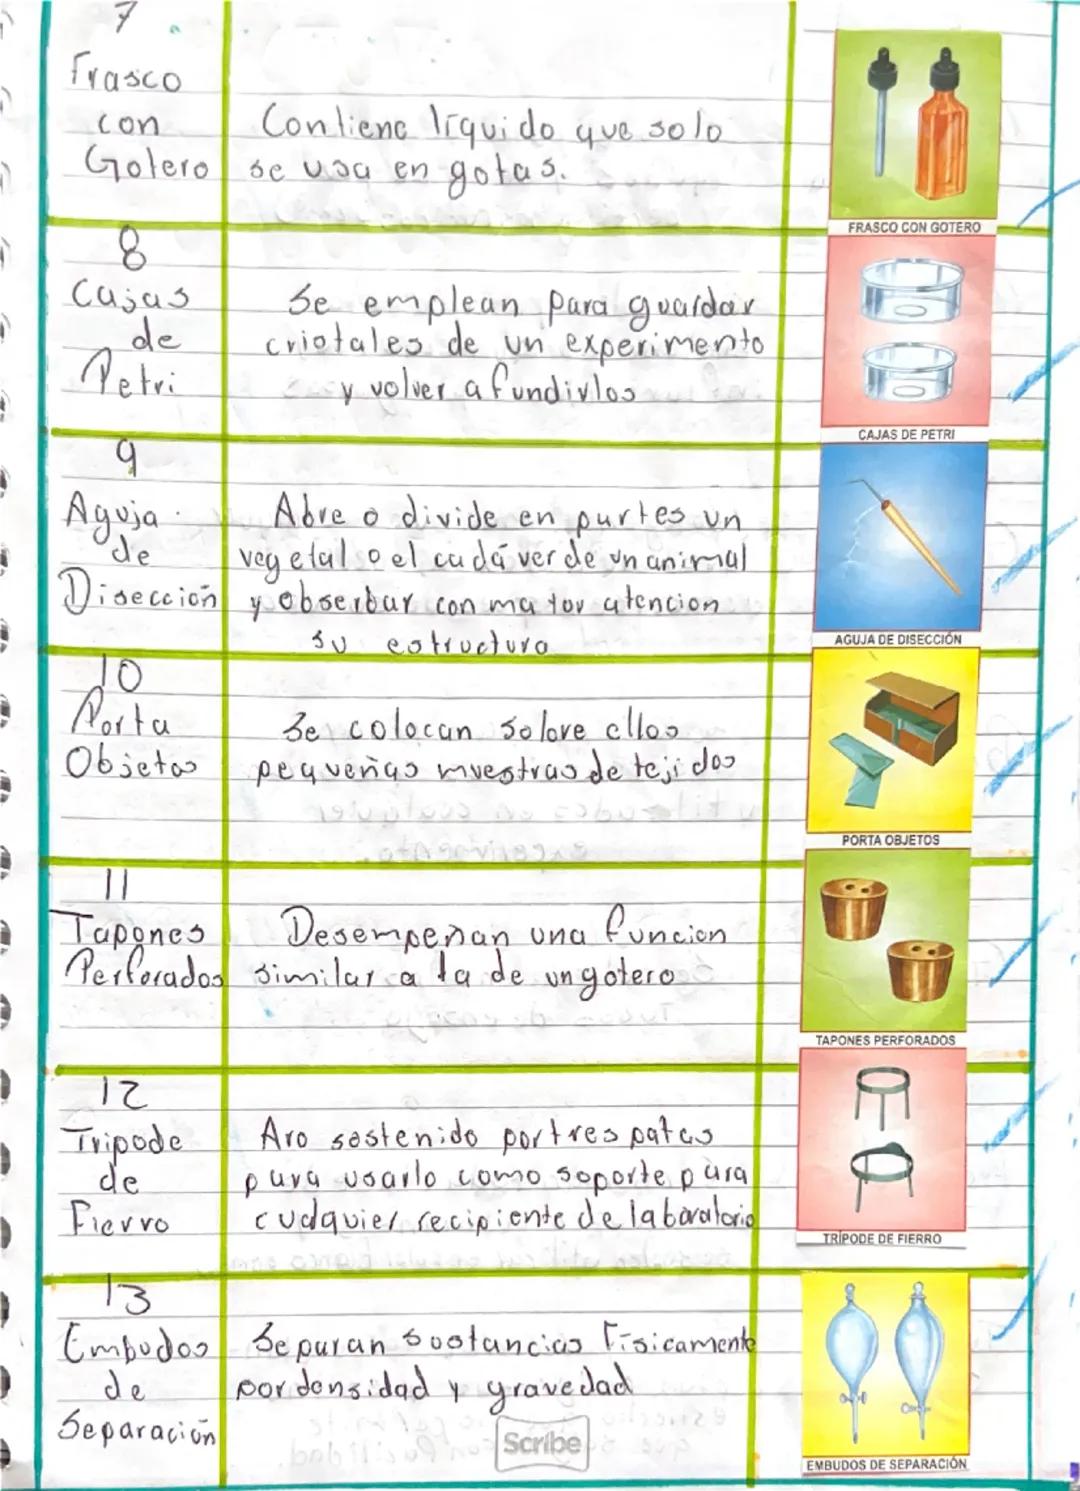 7
Frasco
con
Gotero
Contiene líquido que solo
se usa en gotas.
FRASCO CON GOTERO
8
Cajas
de
Petri
Se emplean para guardar
cristales de un experimento
y volver a fundirlos
CAJAS DE PETRI
9
Aguja
de
Disección
Abre o divide en partes un
vegetal o el cadáver de un animal
y obserbar con mator atencion
su estructura
AGUJA DE DISECCIÓN
10
Porta
Objetos
Se colocan sobre ellos
pequeñas muestras de tejidos
PORTA OBJETOS
11
Tapones
Perforados
Desempeñan una funcion
similar a la de un gotero
TAPONES PERFORADOS
12
Tripode
de
Fierro
Aro sostenido por tres patas
para usarlo como soporte para
cualquier recipiente de laboratorio
TRÍPODE DE FIERRO
13
Embudos
de
Separación
Separan sustancias físicamente
por densidad y gravedad
Scribe
EMBUDOS DE SEPARACIÓN